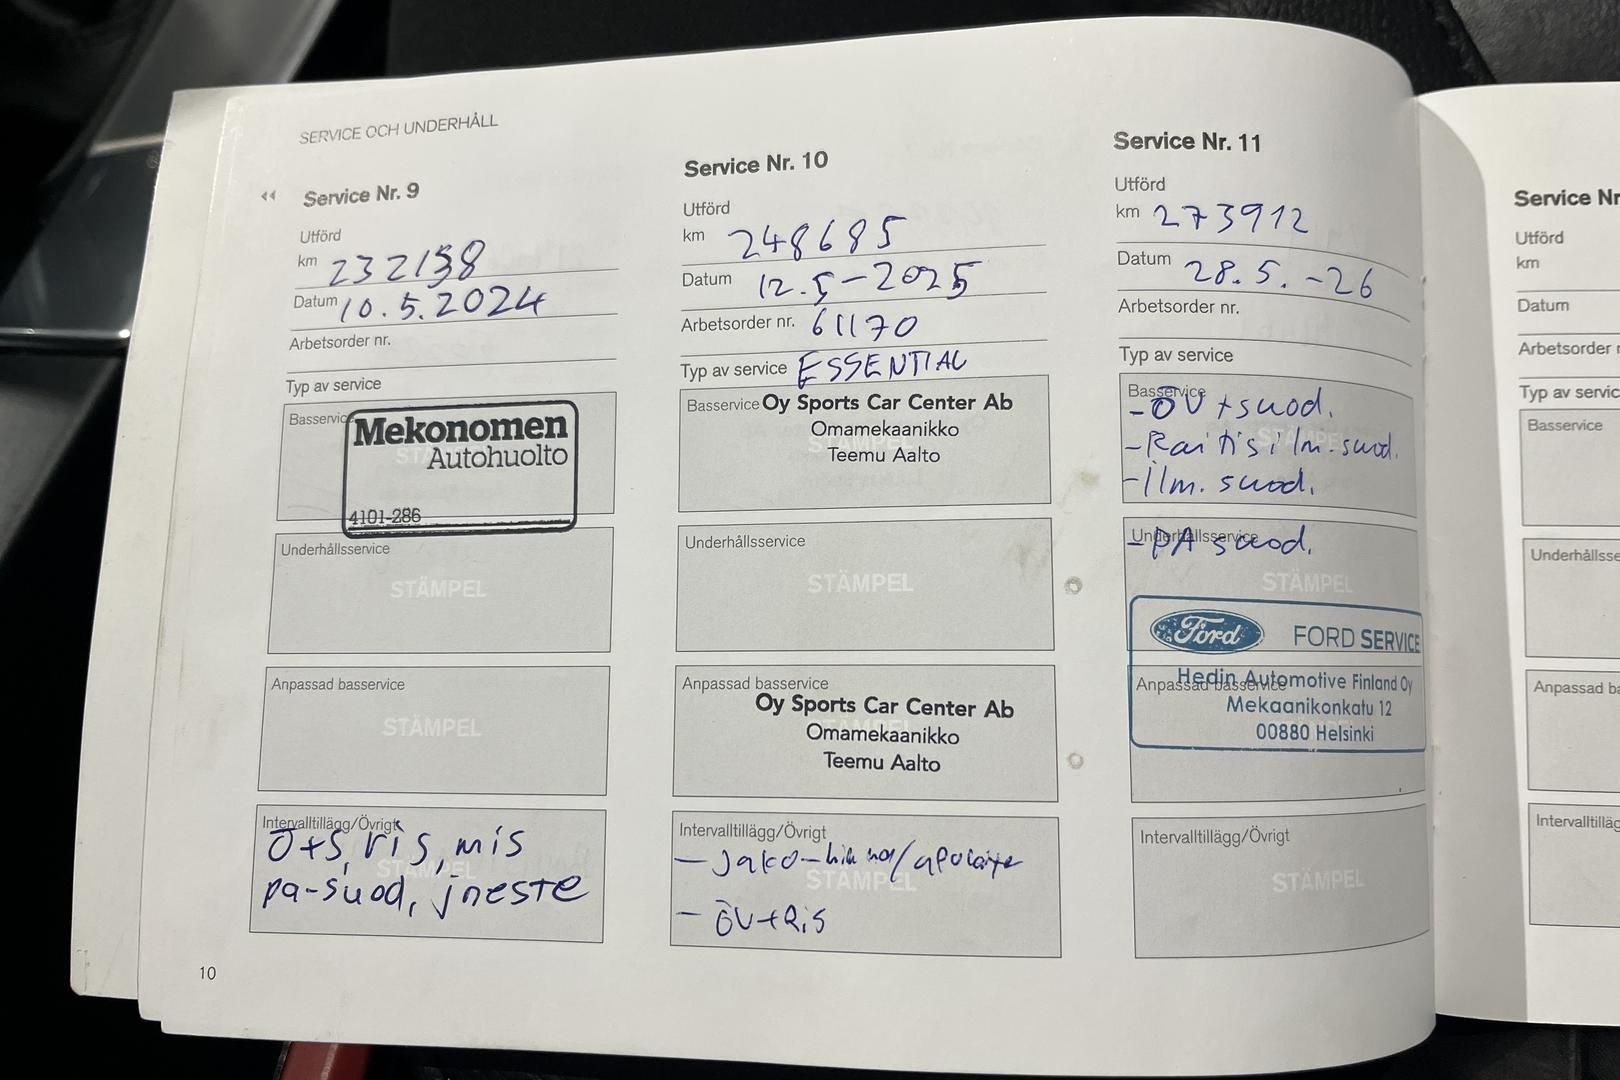 SERVICE OCH UNDERHÅLL
Service Nr. 9
Utförd
km 232138
Datum 10.5.2024
Arbetsorder nr.
Typ av service
Basservice
Mekonomen
Autohuolto
4101-286
Underhållsservice
STÄMPEL
Anpassad basservice
STÄMPEL
Intervalltillägg/Övrigt
Ö+S, ris, mis
STÄMPEL
pa-suod, jneste
10
Service Nr. 10
Utförd
km 248685
Datum 12.5-2025
Arbetsorder nr. 61170
Typ av service ESSENTIAL
Basservice Oy Sports Car Center Ab
Omamekaanikko
STÄMPEL
Teemu Aalto
Underhållsservice
STÄMPEL
Anpassad basservice
Oy Sports Car Center Ab
Omamekaanikko
Teemu Aalto
Intervalltillägg/Övrigt
- Jako-hihna/apulaite
STÄMPEL
- ÖV+Ris
Service Nr. 11
Utförd
km 273912
Datum 28.5.-26
Arbetsorder nr.
Typ av service
Basservice
-ÖV+suod.
-Raitisilm.suod.
-Ilm. suod.
Underhållsservice
-PA suod.
STÄMPEL
Ford FORD SERVICE
Anpassad basservice
Hedin Automotive Finland Oy
Mekaanikonkatu 12
00880 Helsinki
Intervalltillägg/Övrigt
STÄMPEL
Service Nr
Utförd
km
Datum
Arbetsorder
Typ av servic
Basservice
Underhållsse
Anpassad ba
Intervalltilläg